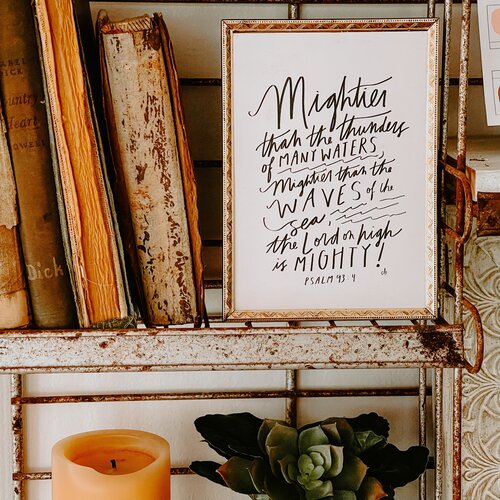 Dick
Country
Heart
Dick
Mightier
than the thunders
of MANY WATERS,
Mightier than the
WAVES of the
sea,
the Lord on high
is MIGHTY!
PSALM 93:4
ch